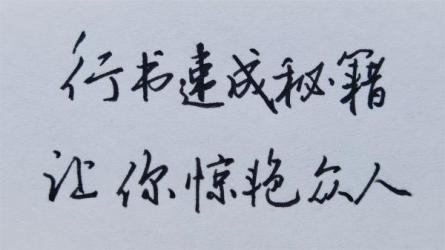 行书速成秘籍
让你惊艳众人